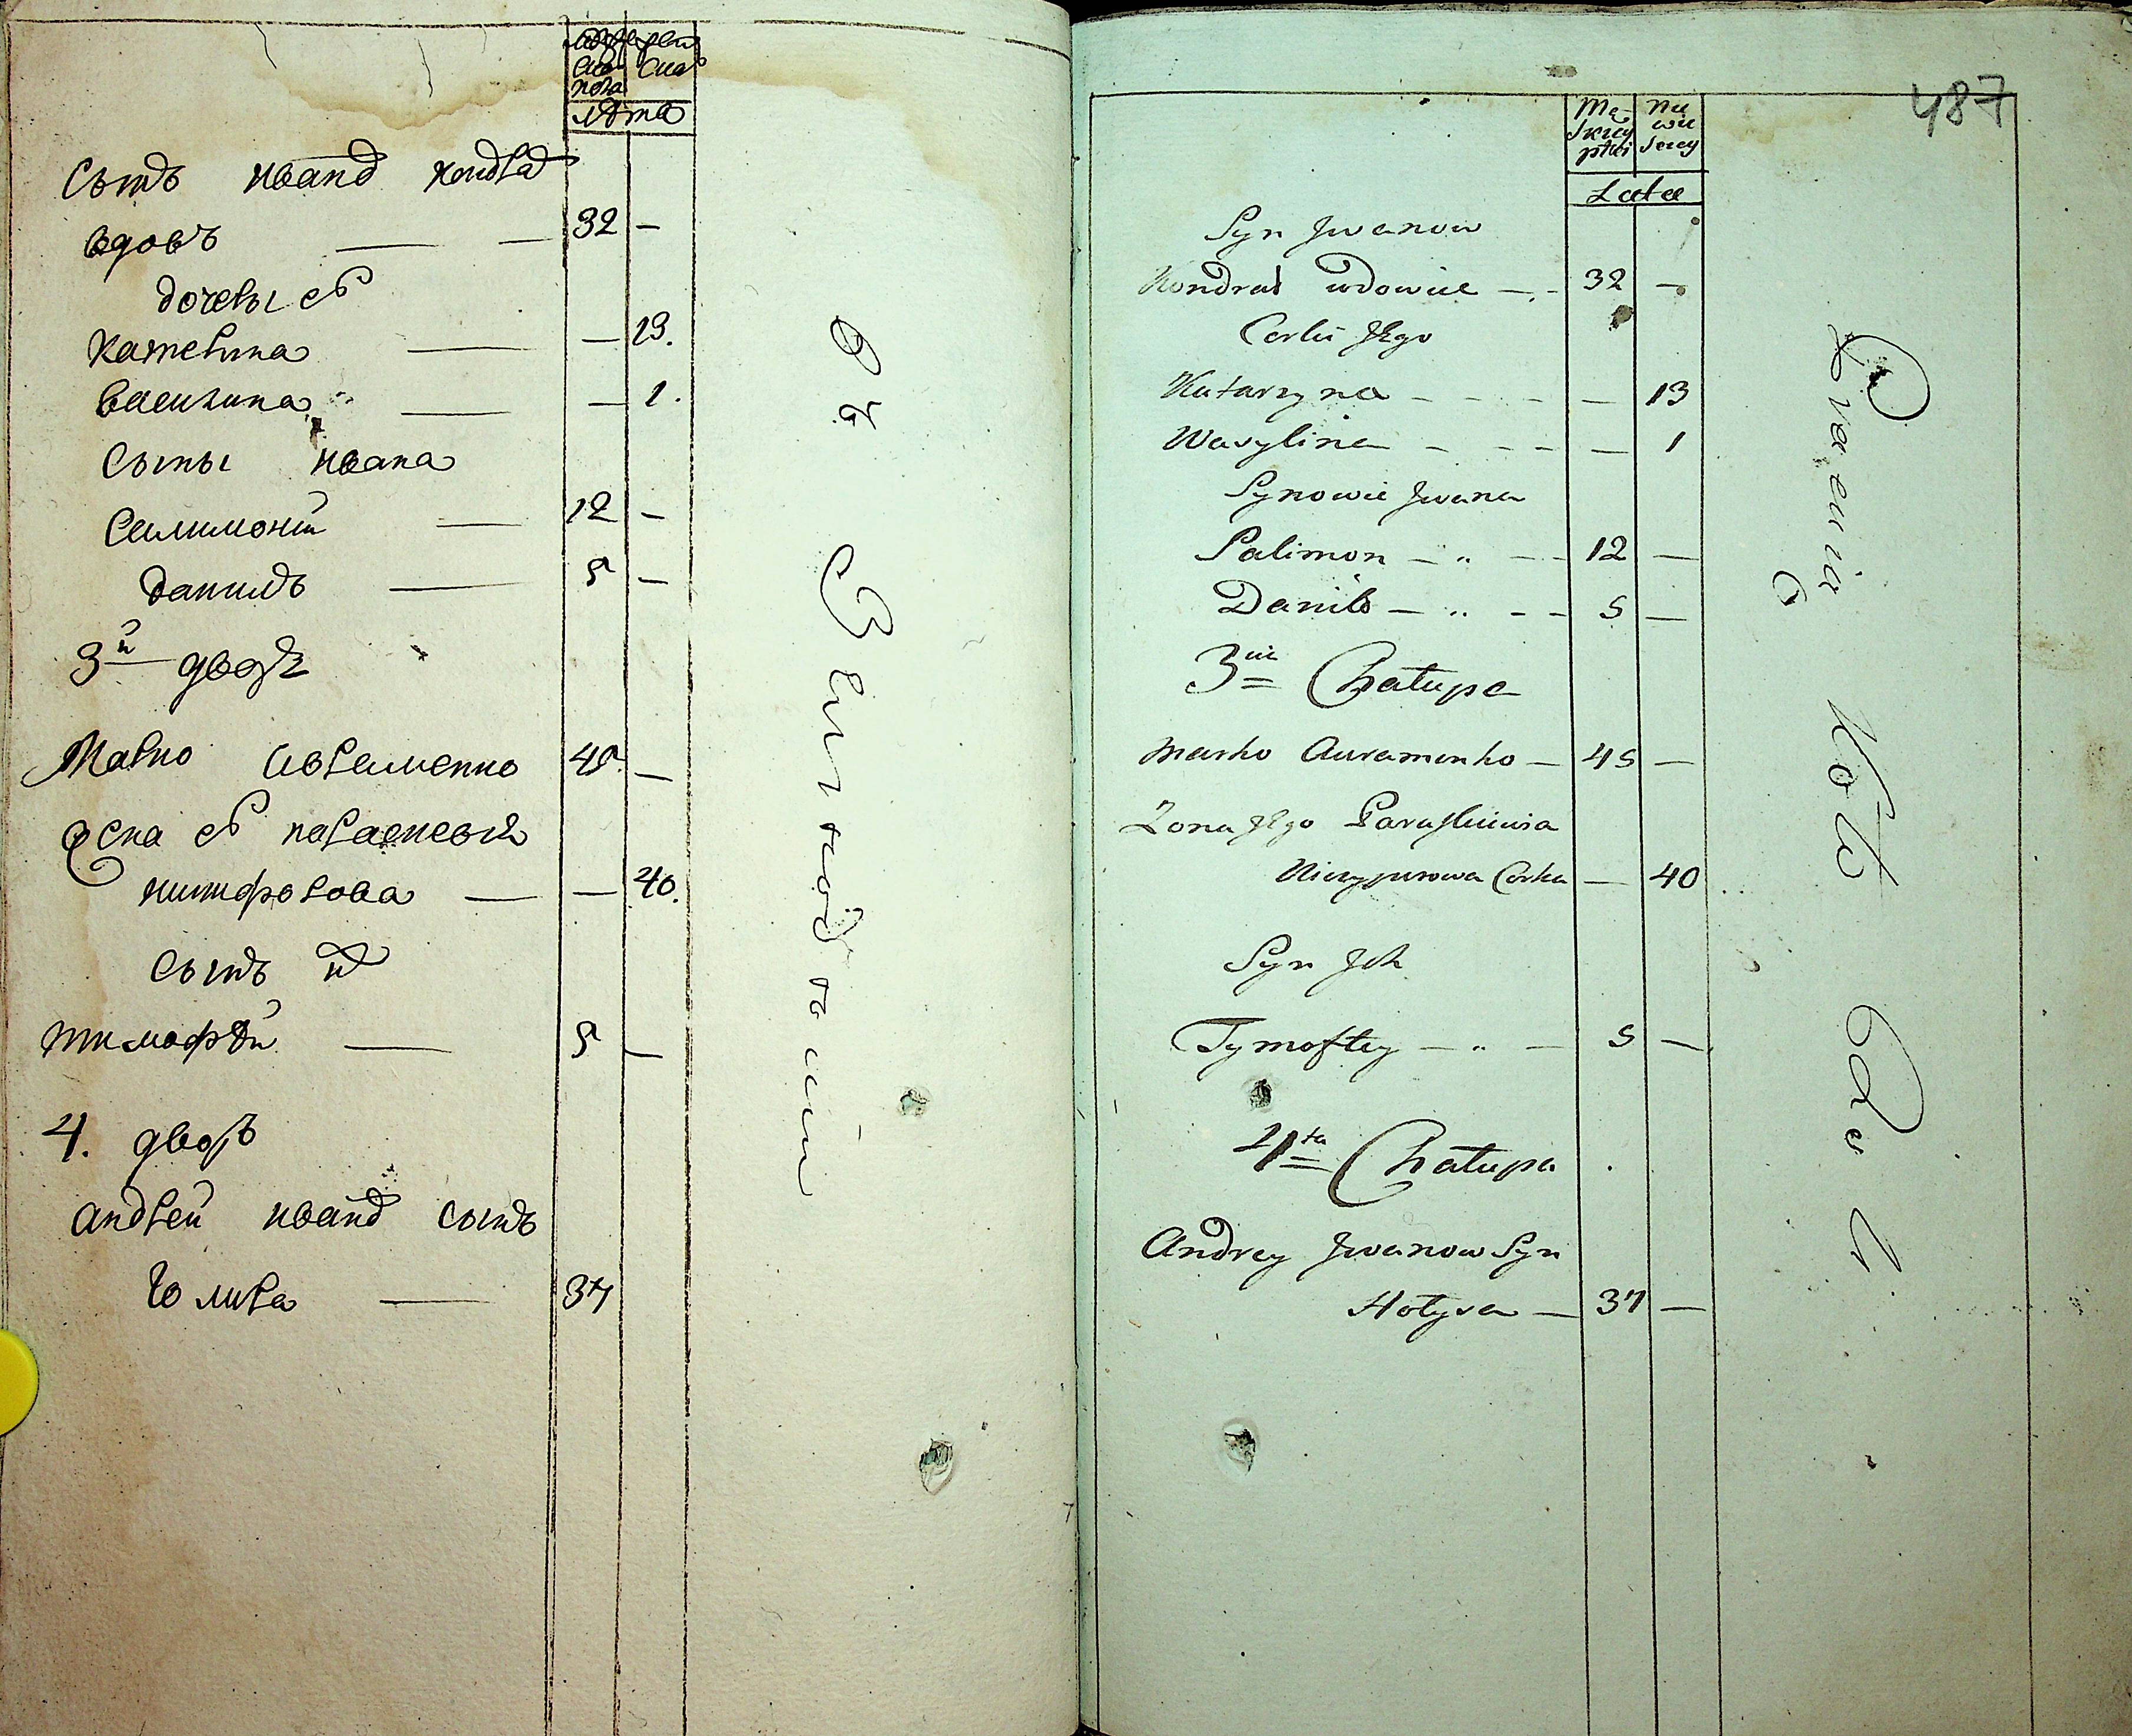 лѣта
Сынъ Иванъ Кондрат
вдовъ — — 32 —
дочеры ево
Катерина — — 13.
Василина — — 1.
Сыны Ивана
Салимоній — 12 —
Данилъ — 5 —
3й дворъ
Марко Авраменко 45 —
жена ево парасковия
ничипорова — — 40.
Сынъ их
тимофѣй — 5 —
4. дворъ
андрей иванъ сынъ
Голиса — 37
487
Mę- Nie
skiey wie
płci sciey
Lata
Syn Jwanow
Kondrat wdowiec — 32 —
Corki Jego
Katarzyna — — 13
Wasylina — — 1
Synowie Jwana
Salimon — 12 —
Daniło — 5 —
3cia Chałupa
Marko Auramenko — 45 —
Żona Jego Paraskiewia
Niczypurowa Corka — 40
Syn Jch
Tymoftey — 5 —
4ta Chałupa
Andrey Jwanow Syn
Hołysa — 37 —